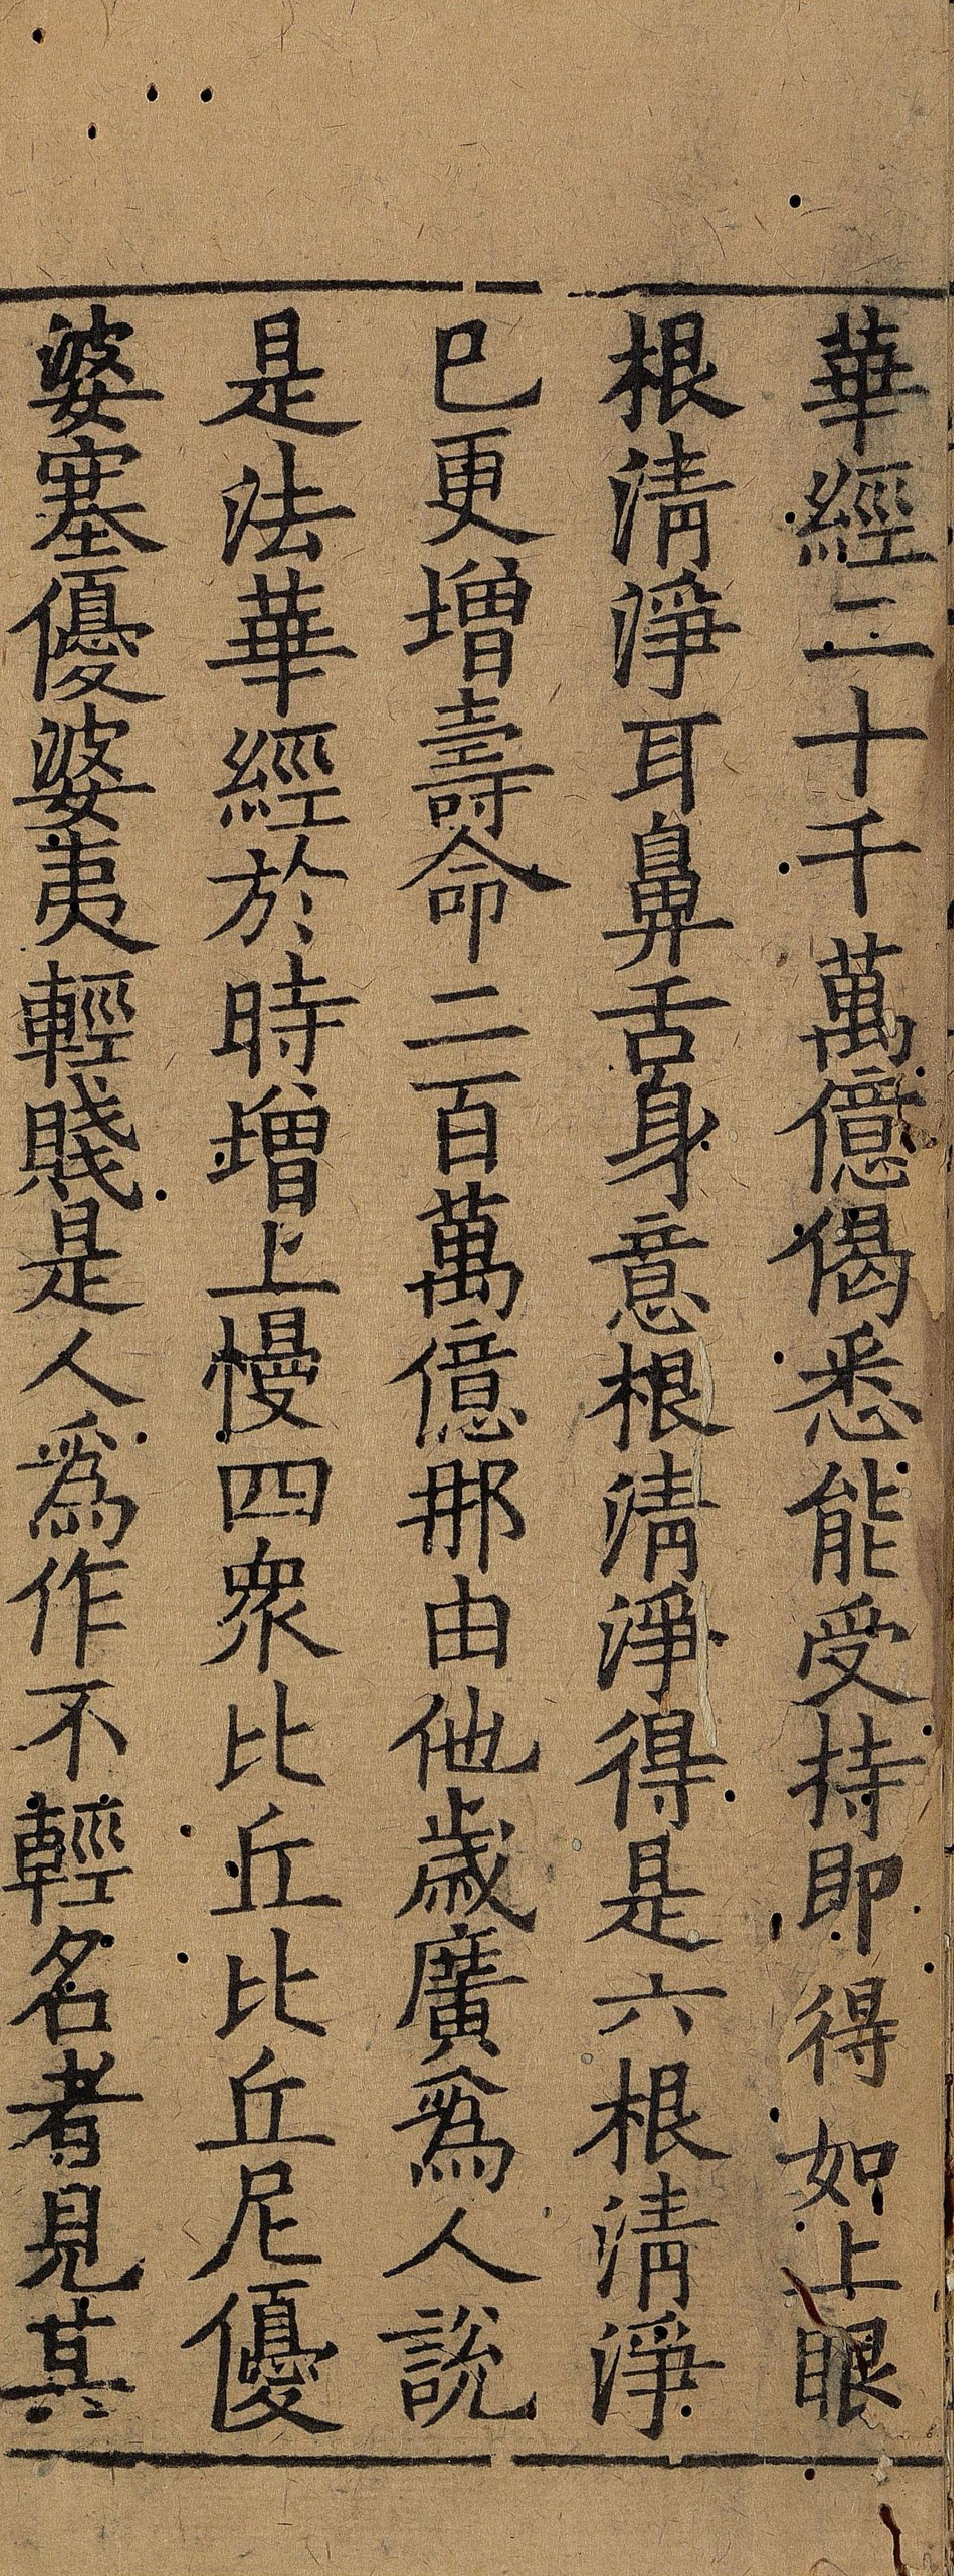 華經二十千萬億偈悉能受持即得如上眼
根清淨耳鼻舌身意根清淨得是六根清淨
已更增壽命二百萬億那由他歲廣爲人說
是法華經於時增上慢四衆比丘比丘尼優
婆塞優婆夷輕賤是人爲作不輕名者見其